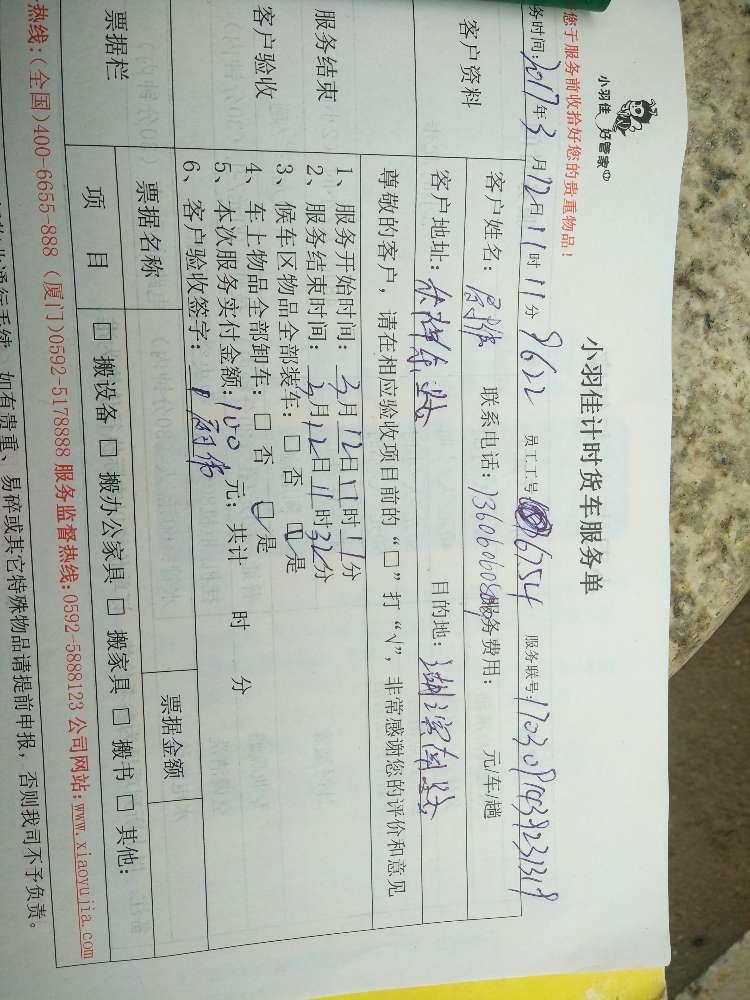 小羽佳 好管家
小羽佳计时货车服务单
您于服务前收拾好您的贵重物品！
务时间：2017年3月12日11时11分 9622 员工工号 6754 服务联号：
客户资料
客户姓名： 联系电话： 服务费用： 元/车/趟
客户地址： 目的地：
尊敬的客户，请在相应验收项目前的“□”打“√”，非常感谢您的评价和意见
服务结束
客户验收
1、服务开始时间：3月12日11时11分
2、服务结束时间：3月12日11时32分
3、候车区物品全部装车：□ 否 □是
4、车上物品全部卸车：□ 否 □是
5、本次服务实付金额：100元；共计 时 分
6、客户验收签字：
票据栏
票据名称 票据金额
项 目 □ 搬设备 □ 搬办公家具 □ 搬家具 □ 搬书 □ 其他：
热线：(全国)400-6655-888 (厦门)0592-5178888 服务监督热线：0592-5888123 公司网站：www.xiaoyujia.com
通行手续，如有贵重、易碎或其它特殊物品请提前申报，否则我司不予负责。